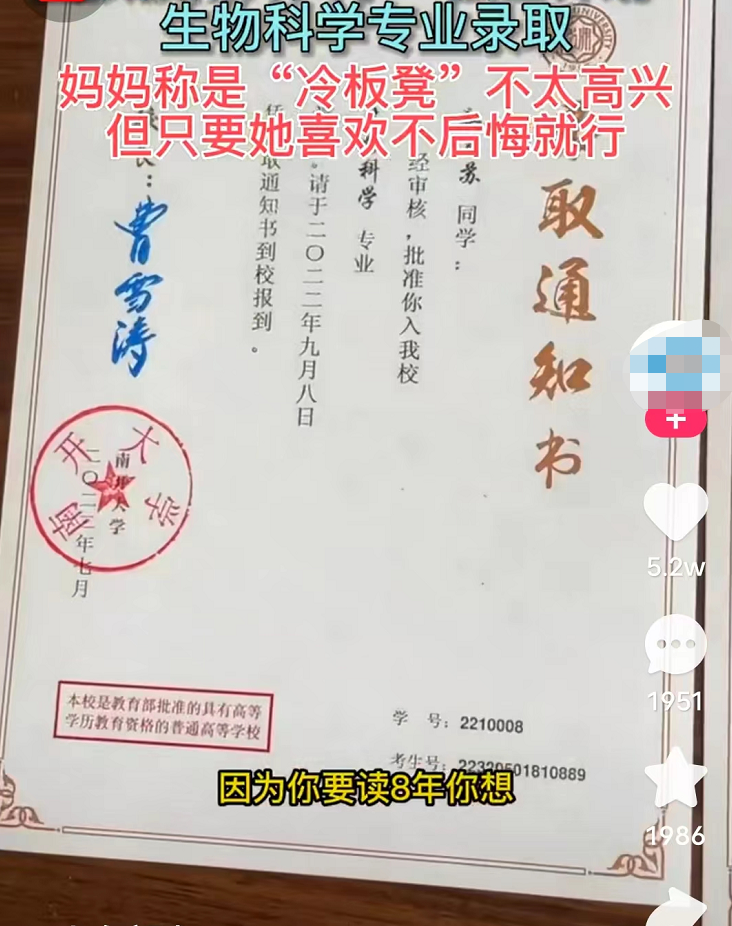 生物科学专业录取
妈妈称是“冷板凳”不太高兴
但只要她喜欢不后悔就行
取通知书
苏 同学：
经审核，批准你入我校
科学 专业
。请于二〇二二年九月八日
取通知书到校报到。
长：曹雪涛
南开大学
二〇二二年七月
南开大学
本校是教育部批准的具有高等
学历教育资格的普通高等学校
学 号：2210008
考生号：22320501810889
因为你要读8年你想
5.2w
1951
1986